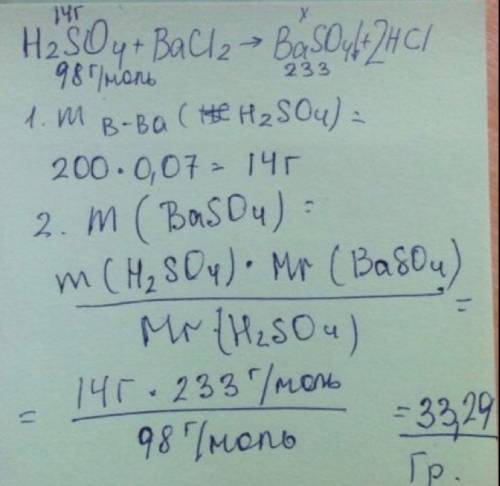 14г x
H₂SO₄ + BaCl₂ → BaSO₄↓ + 2HCl
98 г/моль 233
1. m в-ва (H₂SO₄) =
200 · 0,07 = 14г
2. m (BaSO₄) =
m(H₂SO₄) · Mr (BaSO₄)
=
Mr (H₂SO₄)
= 14г · 233 г/моль = 33,29
98 г/моль Гр.